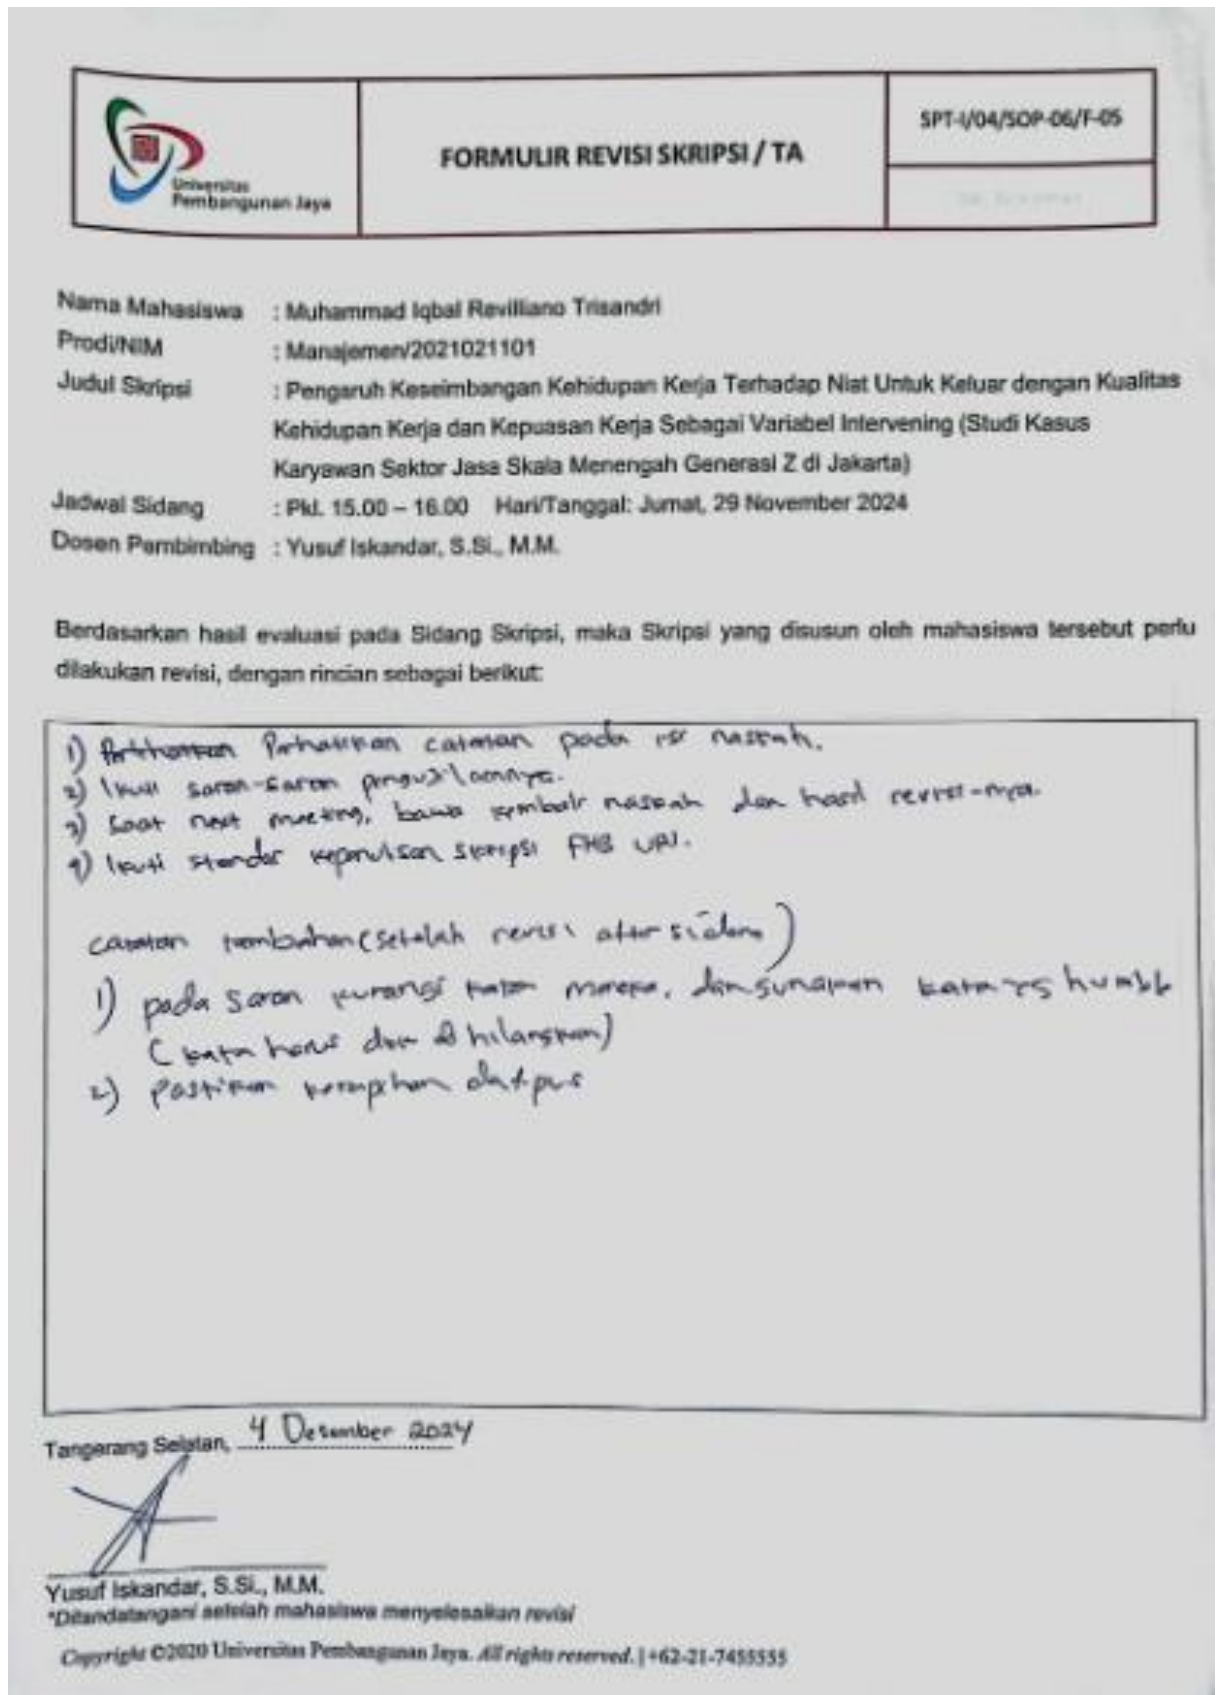 Universitas
Pembangunan Jaya
FORMULIR REVISI SKRIPSI / TA
SPT-I/04/SOP-06/F-05
Nama Mahasiswa : Muhammad Iqbal Revilliano Trisandri
Prodi/NIM : Manajemen/2021021101
Judul Skripsi : Pengaruh Keseimbangan Kehidupan Kerja Terhadap Niat Untuk Keluar dengan Kualitas
Kehidupan Kerja dan Kepuasan Kerja Sebagai Variabel Intervening (Studi Kasus
Karyawan Sektor Jasa Skala Menengah Generasi Z di Jakarta)
Jadwal Sidang : Pkl. 15.00 – 16.00 Hari/Tanggal: Jumat, 29 November 2024
Dosen Pembimbing : Yusuf Iskandar, S.Si., M.M.
Berdasarkan hasil evaluasi pada Sidang Skripsi, maka Skripsi yang disusun oleh mahasiswa tersebut perlu
dilakukan revisi, dengan rincian sebagai berikut:
1) Perhatikan catatan pada isi naskah.
2) Ikuti saran-saran penguji lainnya.
3) Saat next meeting, bawa kembali naskah dan hasil revisi-nya.
4) Ikuti standar kepenulisan skripsi FHB UPJ.
catatan tambahan (setelah revisi after sidang)
1) pada saran kurangi kata mereka, dan gunakan kata yg humble
(kata harus dihilangkan)
2) Pastikan kerapihan dafpus
Tangerang Selatan, 4 Desember 2024
Yusuf Iskandar, S.Si., M.M.
*Ditandatangani setelah mahasiswa menyelesaikan revisi
Copyright ©2020 Universitas Pembangunan Jaya. All rights reserved. | +62-21-7455555